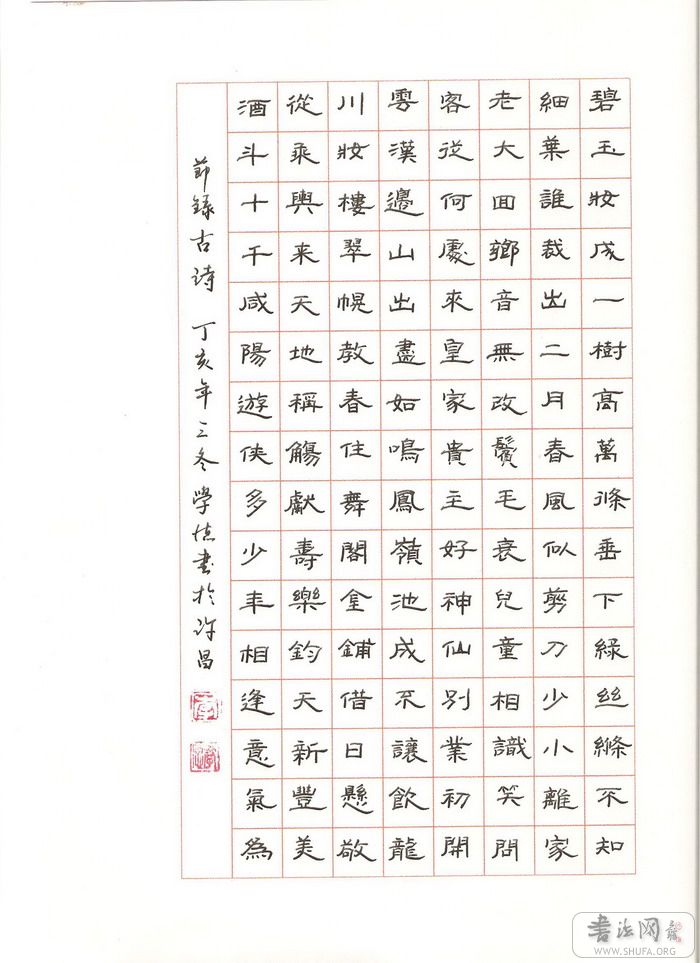 碧玉妝成一樹高萬條垂下綠丝絛不知
細葉誰裁出二月春風似剪刀少小離家
老大囬鄉音無改鬢毛衰兒童相識笑問
客從何處來皇家貴主好神仙別業初開
雲漢邊山出盡如鳴鳳嶺池成不讓飲龍
川妝樓翠幌教春住舞閣金鋪借日懸敬
從乘輿来天地稱觴獻壽樂鈞天新豐美
酒斗十千咸陽遊俠多少年相逢意氣為
節錄古詩 丁亥年三冬學書於許昌
書法网
WWW.SHUFA.ORG